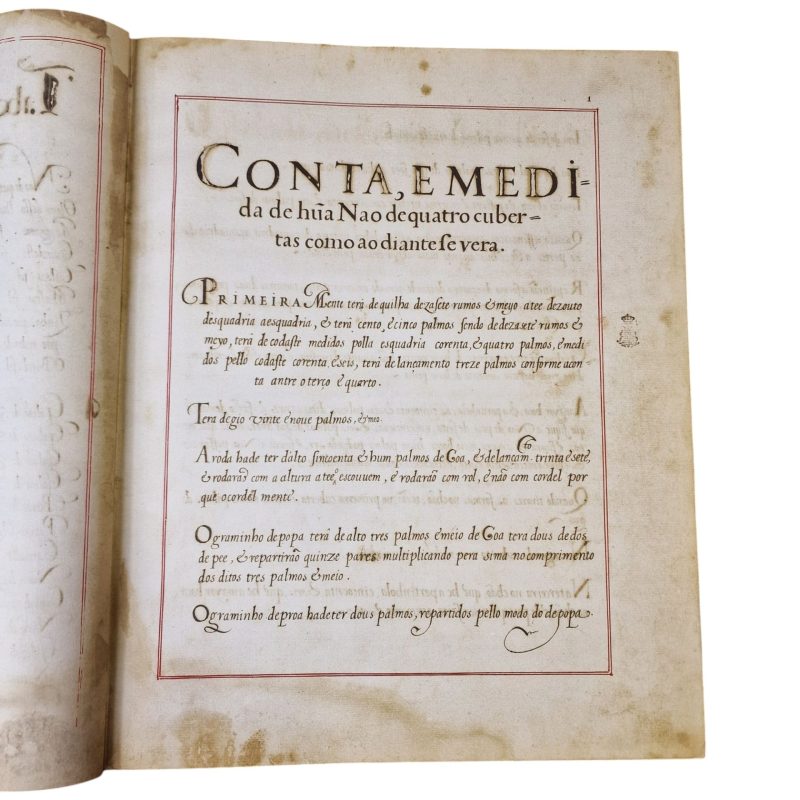 1
CONTA, E MEDI-
da de hũa Nao de quatro cuber-
tas como ao diante se vera.
PRIMEIRA Mente terá de quilha dezasete rumos & meyo atee dezouto
desquadria a esquadria, & terá cento, & cinco palmos sendo de dezasete rumos &
meyo, terá de codaste medidos polla esquadria corenta, & quatro palmos, e medi
dos pello codaste corenta, & seis, terá de lançamento treze palmos conforme a con
ta antre o terço & quarto.
Tera de gio vinte & nove palmos, & meo.
A roda ha de ter d'alto sincoenta & hum palmos de Goa, & de lançam.to trinta & sete,
& rodará com a altura atee o escouuem, & rodarão com rol, & não com cordel por
què o cordèl mente.
O graminho de popa terá de alto tres palmos & meio de Goa tera dous de dos
de pee, & repartirão quinze pares multiplicando pera sima no comprimento
dos ditos tres palmos & meio.
O graminho de proa ha de ter dous palmos, repartidos pello modo do de popa.